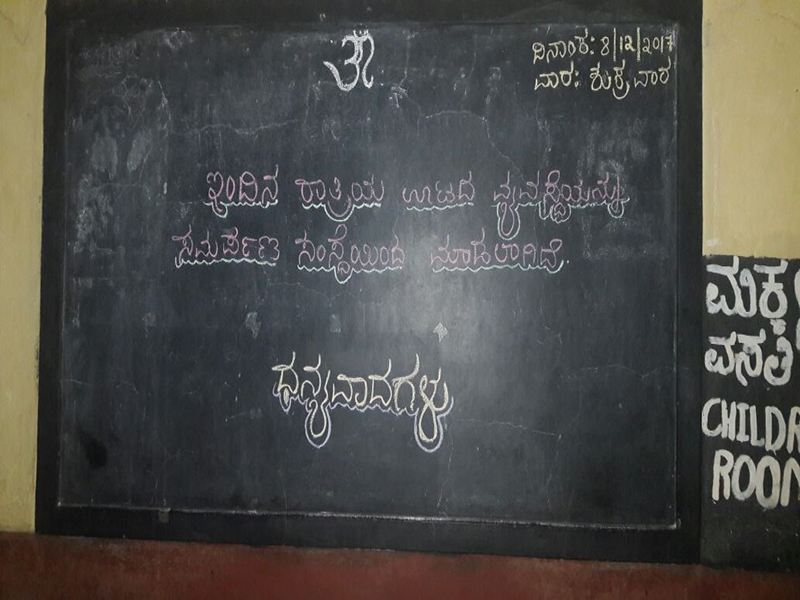 ಓಂ
ದಿನಾಂಕ: 8/12/2017
ವಾರ: ಶುಕ್ರವಾರ
ಇಂದಿನ ರಾತ್ರಿಯ ಊಟದ ವ್ಯವಸ್ಥೆಯನ್ನು
ಸಮರ್ಪಣ ಸಂಸ್ಥೆಯಿಂದ ಮಾಡಲಾಗಿದೆ.
ಧನ್ಯವಾದಗಳು
ಮಕ್ಕ
ವಸತಿ
CHILDR
ROOM